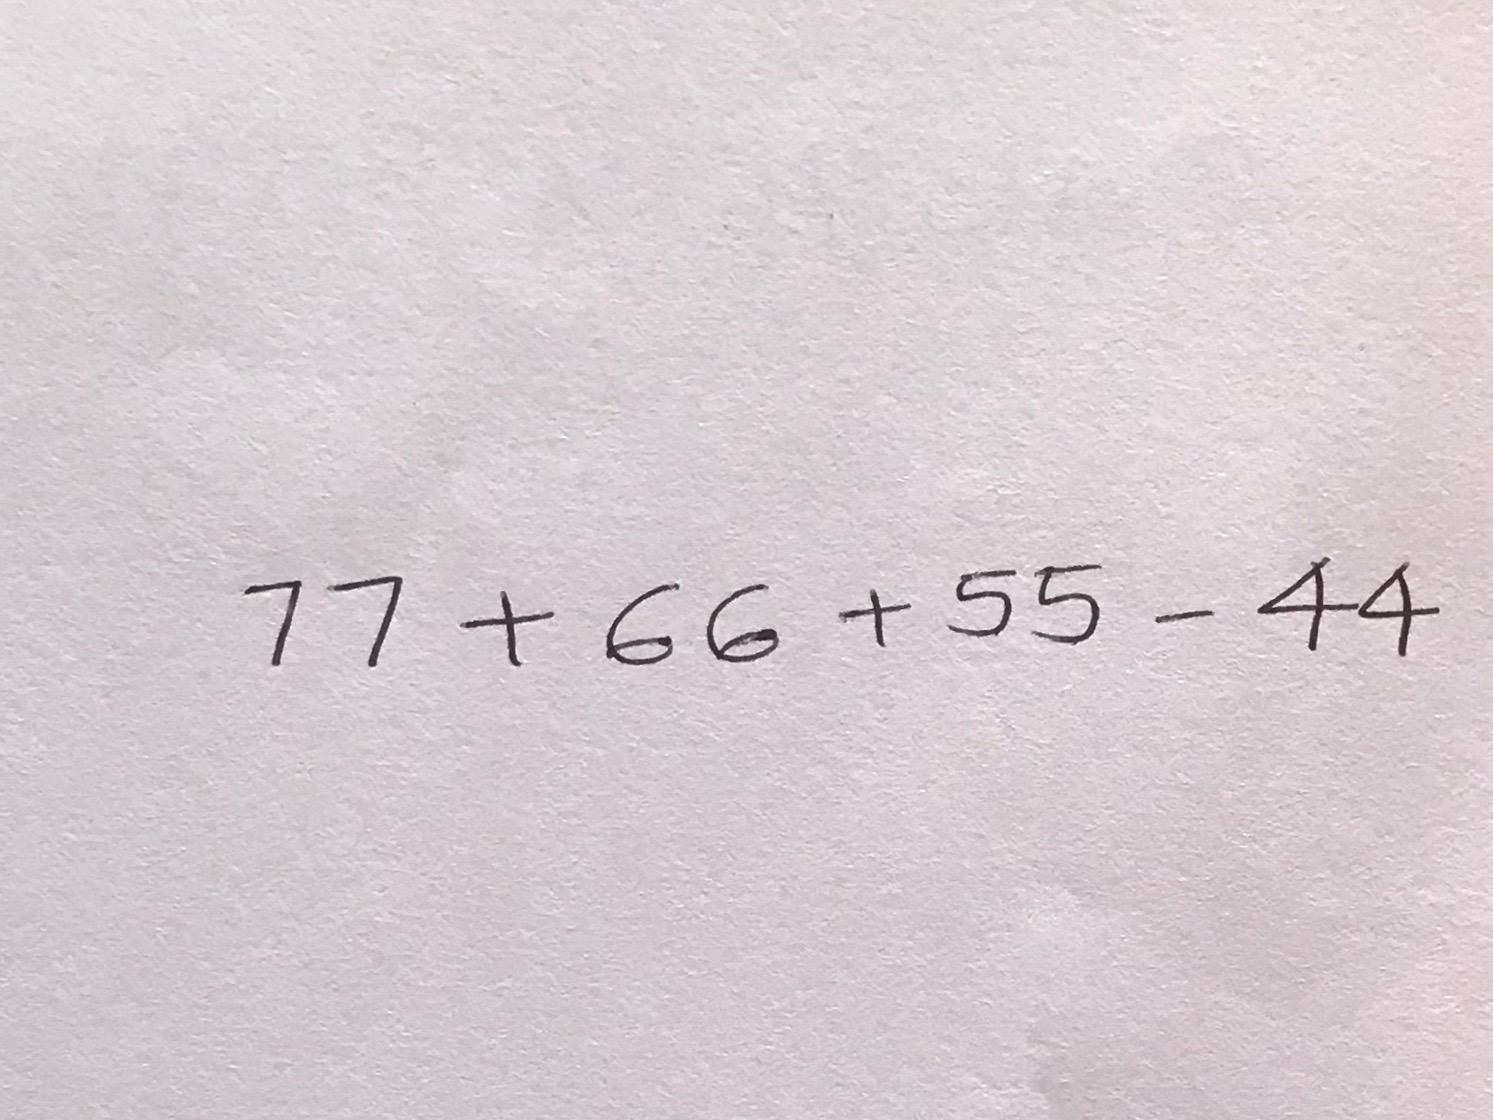 77 + 66 + 55 - 44